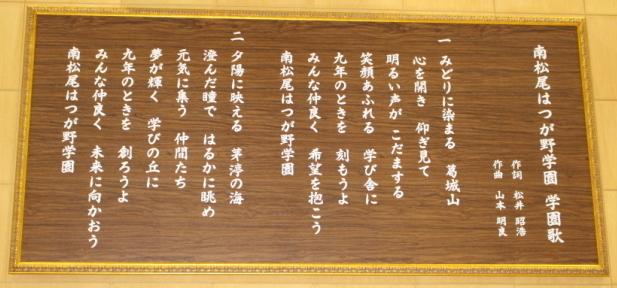 南松尾はつが野学園 学園歌
作詞 松井 昭浩
作曲 山本 明良
一 みどりに染まる 葛城山
心を開き 仰ぎ見て
明るい声が こだまする
笑顔あふれる 学び舎に
九年のときを 刻もうよ
みんな仲良く 希望を抱こう
南松尾はつが野学園
二 夕陽に映える 茅渟の海
澄んだ瞳で はるかに眺め
元気に集う 仲間たち
夢が輝く 学びの丘に
九年のときを 創ろうよ
みんな仲良く 未来に向かおう
南松尾はつが野学園